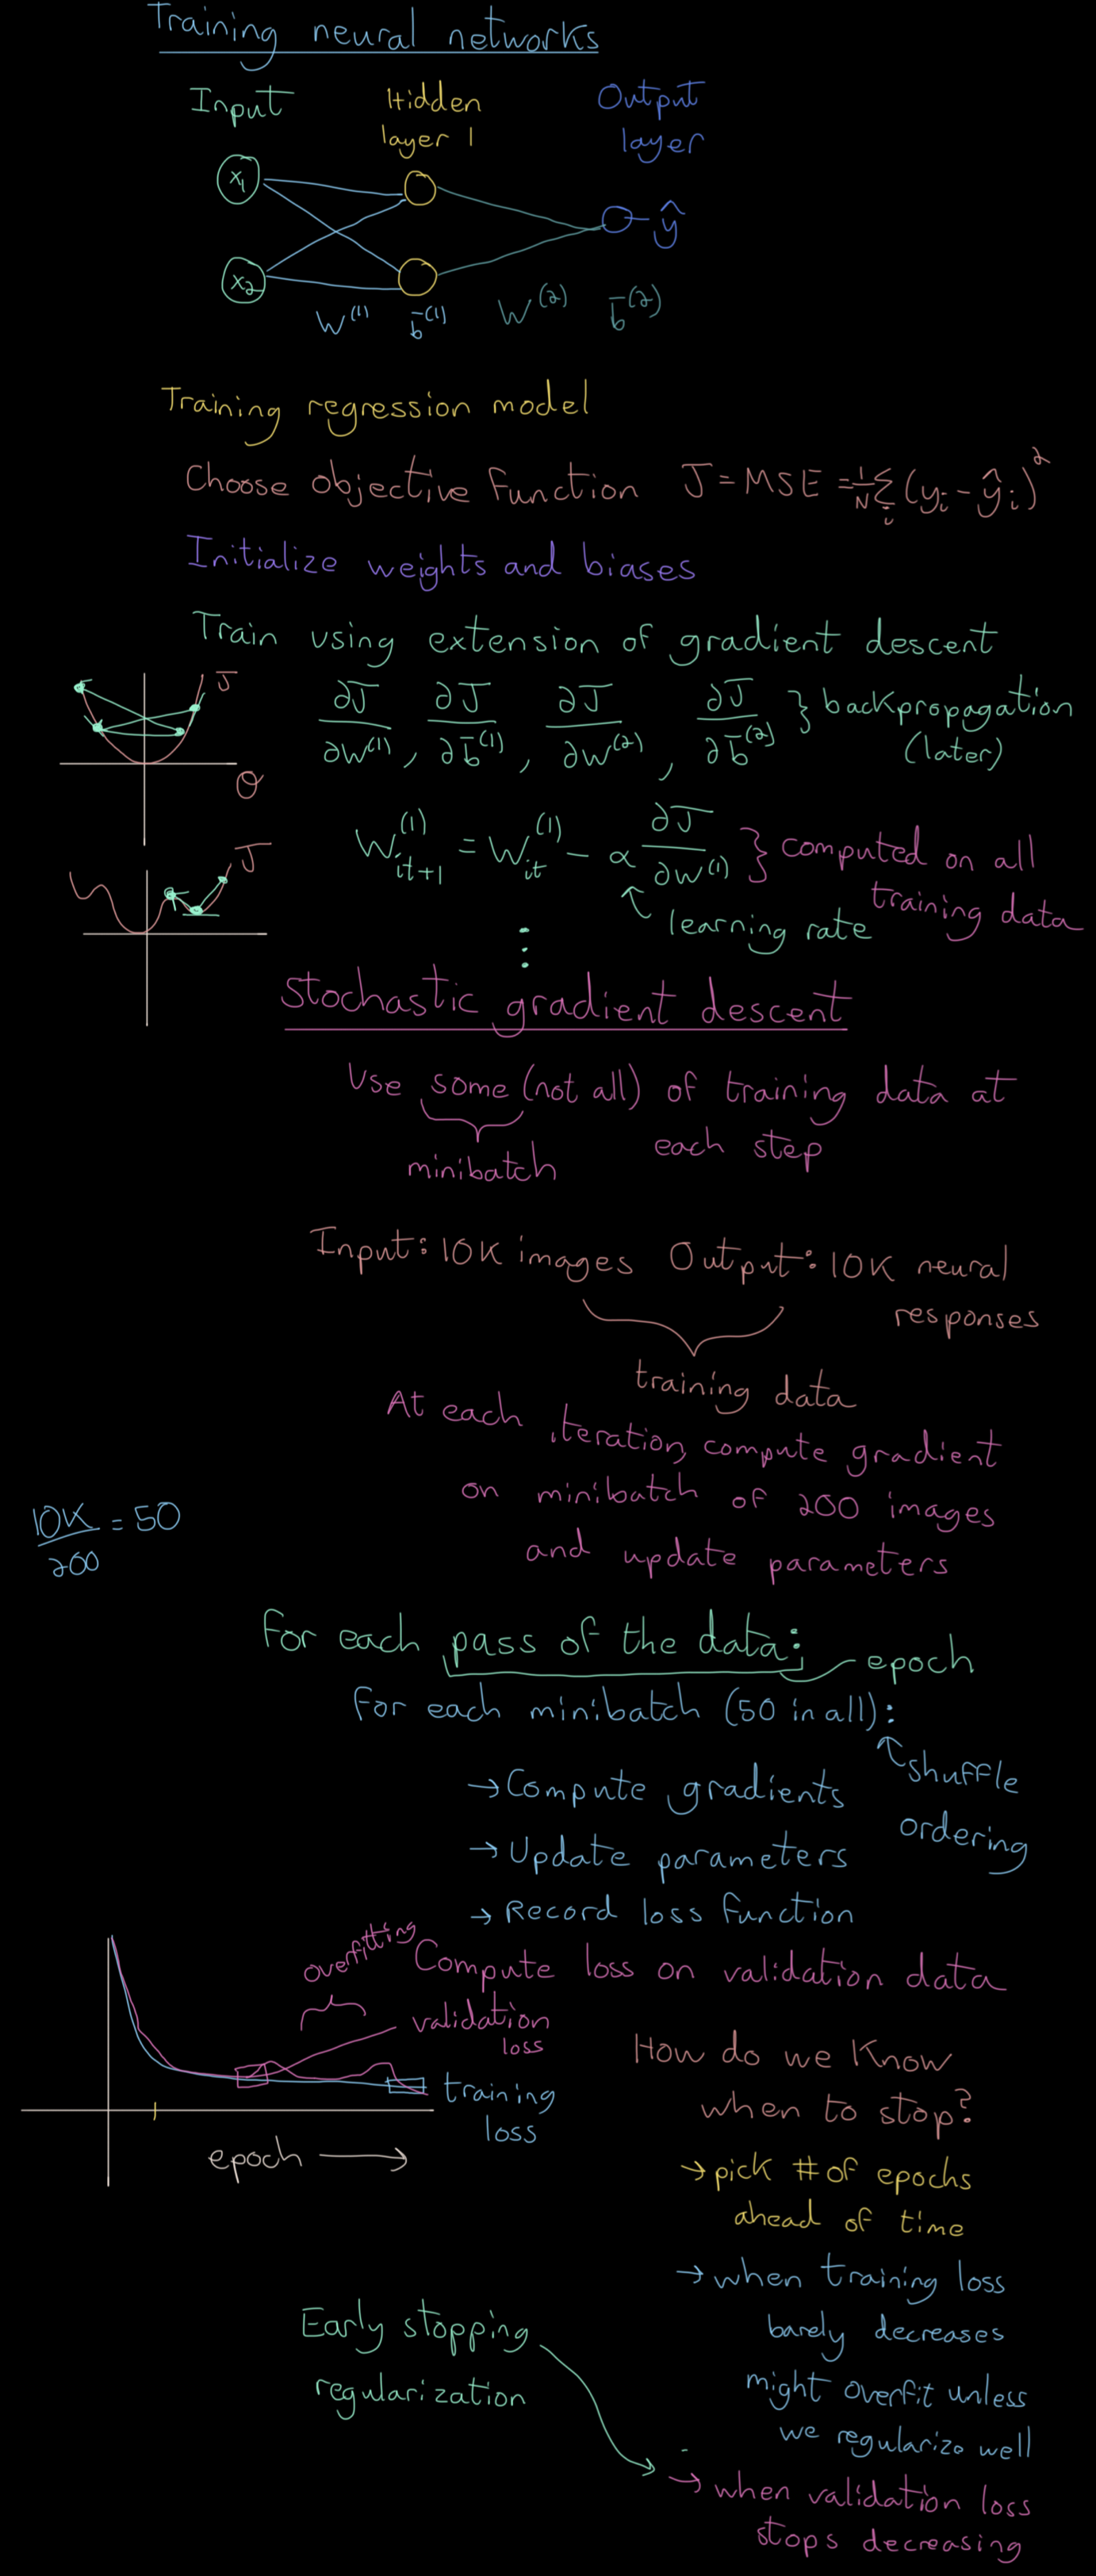 Training neural networks
Input Hidden Output
layer 1 layer
x₁
ŷ
x₂
W⁽¹⁾ b̄⁽¹⁾ W⁽²⁾ b̄⁽²⁾
Training regression model
Choose objective function J = MSE = 1/N Σᵢ (yᵢ - ŷᵢ)²
Initialize weights and biases
Train using extension of gradient descent
J
θ
∂J/∂W⁽¹⁾, ∂J/∂b̄⁽¹⁾, ∂J/∂W⁽²⁾, ∂J/∂b̄⁽²⁾ } backpropagation
(later)
J
W⁽¹⁾ it+1 = W⁽¹⁾ it - α ∂J/∂W⁽¹⁾ } computed on all
training data
learning rate
⋮
Stochastic gradient descent
Use some (not all) of training data at
each step
minibatch
Input: 10K images Output: 10K neural
responses
training data
At each iteration, compute gradient
on minibatch of 200 images
and update parameters
10K/200 = 50
For each pass of the data: epoch
For each minibatch (50 in all):
shuffle
ordering
→ Compute gradients
→ Update parameters
→ Record loss function
Compute loss on validation data
overfitting
validation
loss
training
loss
epoch →
How do we know
when to stop?
→ pick # of epochs
ahead of time
→ when training loss
barely decreases
might overfit unless
we regularize well
Early stopping
regularization
→ when validation loss
stops decreasing